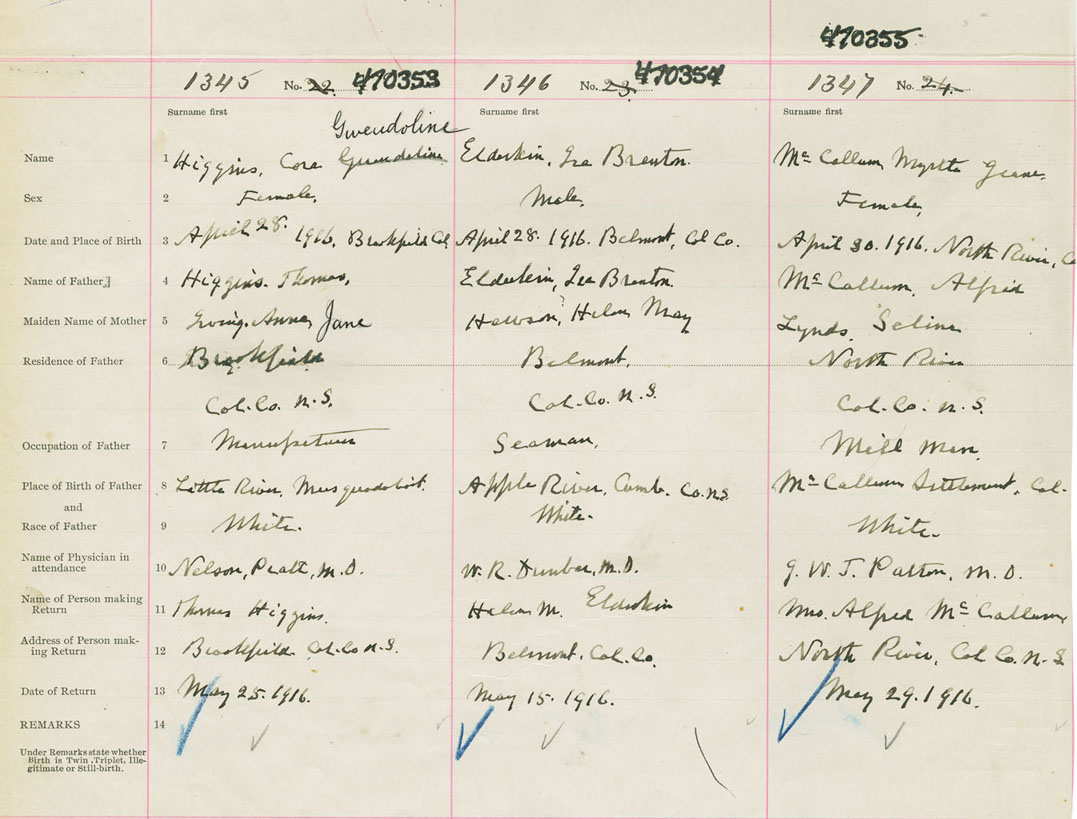 470355
1345 No. 22. 470353 1346 No. 23. 470354 1347 No. 24.
Surname first Surname first Surname first
Gwendoline
Name 1 Higgins, Cora Gwendoline Elderkin, Ira Brenton. McCallum, Myrtle
Sex 2 Female. Male. Female,
Date and Place of Birth 3 April 28. 1916, Brookfield Col April 28. 1916. Belmont, Col Co. April 30. 1916. North River, Co
Name of Father 4 Higgins. Thomas, Elderkin, Ira Brenton. McCallum, Alfred
Maiden Name of Mother 5 Ewing. Anna Jane Hewson, Helen May Lynds, Selina
Residence of Father 6 Brookfield Belmont, North River
Col. Co. N.S. Col. Co. N.S. Col. Co. N.S.
Occupation of Father 7 Manufacturer Seaman, Mill man.
Place of Birth of Father 8 Little River, Musquodoboit. Apple River, Cumb. Co. N.S. McCallum Settlement, Col.
and
Race of Father 9 White. White. White.
Name of Physician in
attendance 10 Nelson, Pratt, M.D. W. R. Dunbar, M.D. G. W. T. Patton, M.D.
Name of Person making
Return 11 Thomas Higgins. Helen M. Elderkin Mrs. Alfred McCallum,
Address of Person mak-
ing Return 12 Brookfield. Col. Co N.S. Belmont, Col. Co. North River, Col Co. N.S
Date of Return 13 May 25. 1916. May 15. 1916. May 29. 1916.
REMARKS 14
Under Remarks state whether
Birth is Twin, Triplet, Ille-
gitimate or Still-birth.